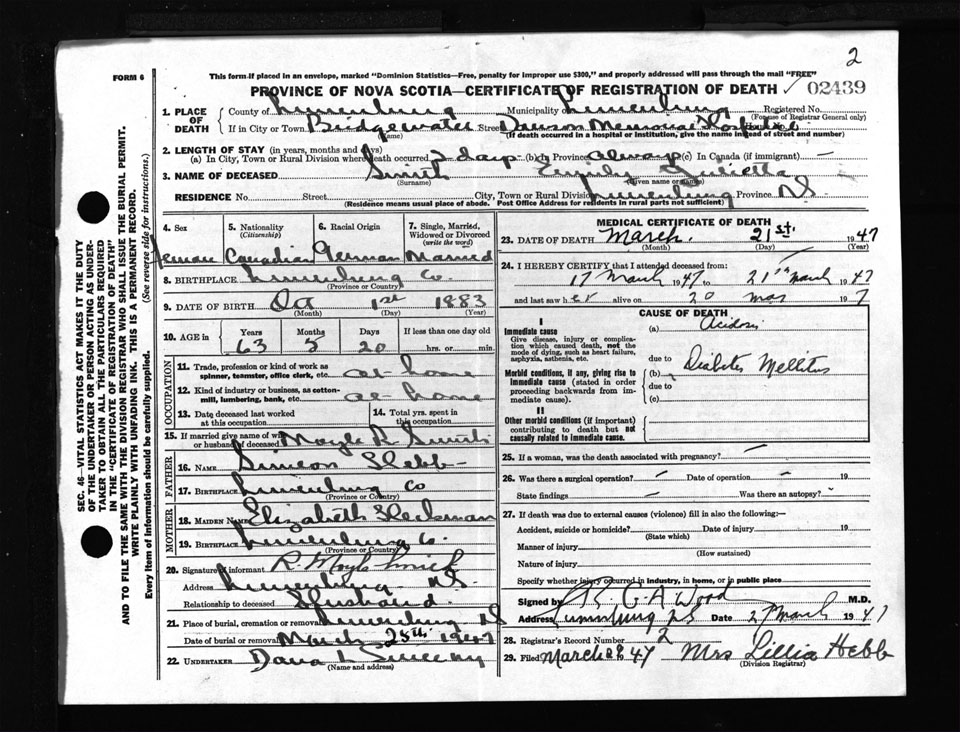 2
FORM 6
This form if placed in an envelope, marked "Dominion Statistics—Free, penalty for improper use $300," and properly addressed will pass through the mail "FREE"
PROVINCE OF NOVA SCOTIA—CERTIFICATE OF REGISTRATION OF DEATH ✓ 02439
SEC. 46—VITAL STATISTICS ACT MAKES IT THE DUTY
OF THE UNDERTAKER OR PERSON ACTING AS UNDER-
TAKER TO OBTAIN ALL THE PARTICULARS REQUIRED
IN THE "CERTIFICATE OF REGISTRATION OF DEATH"
AND TO FILE THE SAME WITH THE DIVISION REGISTRAR WHO SHALL ISSUE THE BURIAL PERMIT.
WRITE PLAINLY WITH UNFADING INK. THIS IS A PERMANENT RECORD.
Every item of information should be carefully supplied. (See reverse side for instructions.)
1. PLACE OF DEATH County of Lunenburg Municipality of Lunenburg Registered No.
(For use of Registrar General only)
If in City or Town Bridgewater Street Dawson Memorial Hospital
(Name) (If death occurred in a hospital or institution, give the name instead of street and number)
2. LENGTH OF STAY (in years, months and days)
(a) In City, Town or Rural Division where death occurred 2 days (b) In Province always (c) In Canada (if immigrant) —
3. NAME OF DECEASED Smith Emily Julietta
(Surname) (Given name or names)
RESIDENCE No. Street City, Town or Rural Division Lunenburg Province NS
(Residence means usual place of abode. Post Office Address for residents in rural parts not sufficient)
4. Sex 5. Nationality (Citizenship) 6. Racial Origin 7. Single, Married, Widowed or Divorced (write the word)
Female Canadian German Married
8. BIRTHPLACE Lunenburg Co.
(Province or Country)
9. DATE OF BIRTH Oct 1st 1883
(Month) (Day) (Year)
10. AGE in Years Months Days If less than one day old
63 5 20 hrs. or min.
OCCUPATION
11. Trade, profession or kind of work as spinner, teamster, office clerk, etc. at home
12. Kind of industry or business, as cotton-mill, lumbering, bank, etc. at home
13. Date deceased last worked at this occupation 14. Total yrs. spent in this occupation
15. If married give name of wife or husband of deceased Moyle R Smith
FATHER
16. NAME Simeon Hebb
17. BIRTHPLACE Lunenburg Co
(Province or Country)
MOTHER
18. MAIDEN NAME Elizabeth Heckman
19. BIRTHPLACE Lunenburg Co.
(Province or Country)
20. Signature of informant R. Moyle Smith
Address Lunenburg NS.
Relationship to deceased Husband.
21. Place of burial, cremation or removal Lunenburg NS
Date of burial or removal March 25th 1947
22. UNDERTAKER Dana L Sweeny
(Name and address)
MEDICAL CERTIFICATE OF DEATH
23. DATE OF DEATH March. 21st. 1947
(Month) (Day) (Year)
24. I HEREBY CERTIFY that I attended deceased from:
17 March 1947 to 21st March 1947
and last saw her alive on 20 Mar 1947
CAUSE OF DEATH
I
Immediate cause (a) Acidosis
Give disease, injury or complication which caused death, not the mode of dying, such as heart failure, asphyxia, asthenia, etc.
due to
Morbid conditions, if any, giving rise to immediate cause (stated in order proceeding backwards from immediate cause). (b) Diabetes Mellitus
due to
(c)
II
Other morbid conditions (if important) contributing to death but not causally related to immediate cause.
25. If a woman, was the death associated with pregnancy? —
26. Was there a surgical operation? — Date of operation — 19
State findings — Was there an autopsy? —
27. If death was due to external causes (violence) fill in also the following:—
Accident, suicide or homicide? Date of injury 19
(State which)
Manner of injury
(How sustained)
Nature of injury
Specify whether injury occurred in industry, in home, or in public place
Signed by G A Wood M.D.
Address Lunenburg NS Date 27 March 1947
28. Registrar's Record Number 2
29. Filed March 28 47 Mrs Lillia Hebb
(Division Registrar)